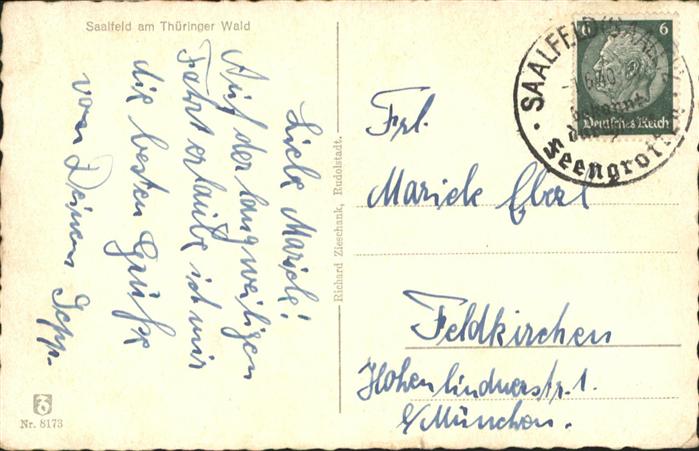 Saalfeld am Thüringer Wald
Liebe Mariele!
Auf der langweiligen
Fahrt erlaube ich mir
die besten Grüße
von Deinem Sepp.
Richard Zieschank, Rudolstadt.
Nr. 8173
6 6
Deutsches Reich
SAALFELD (SAALE)
.6.40
bekannt
durch
Feengrotten
Frl.
Mariele Eberl
Feldkirchen
Hohenlindnerstr. 1.
b/München.